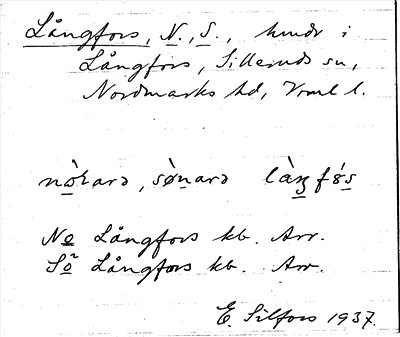 Långfors, N., S., hmdr i
Långfors, Silleruds sn,
Nordmarks hd, Vrml l.
nòɾarə, sø̀narə làŋfórs
No Långfors kb. Arr.
Sö Långfors kb. Arr.
E. Silfors 1937.